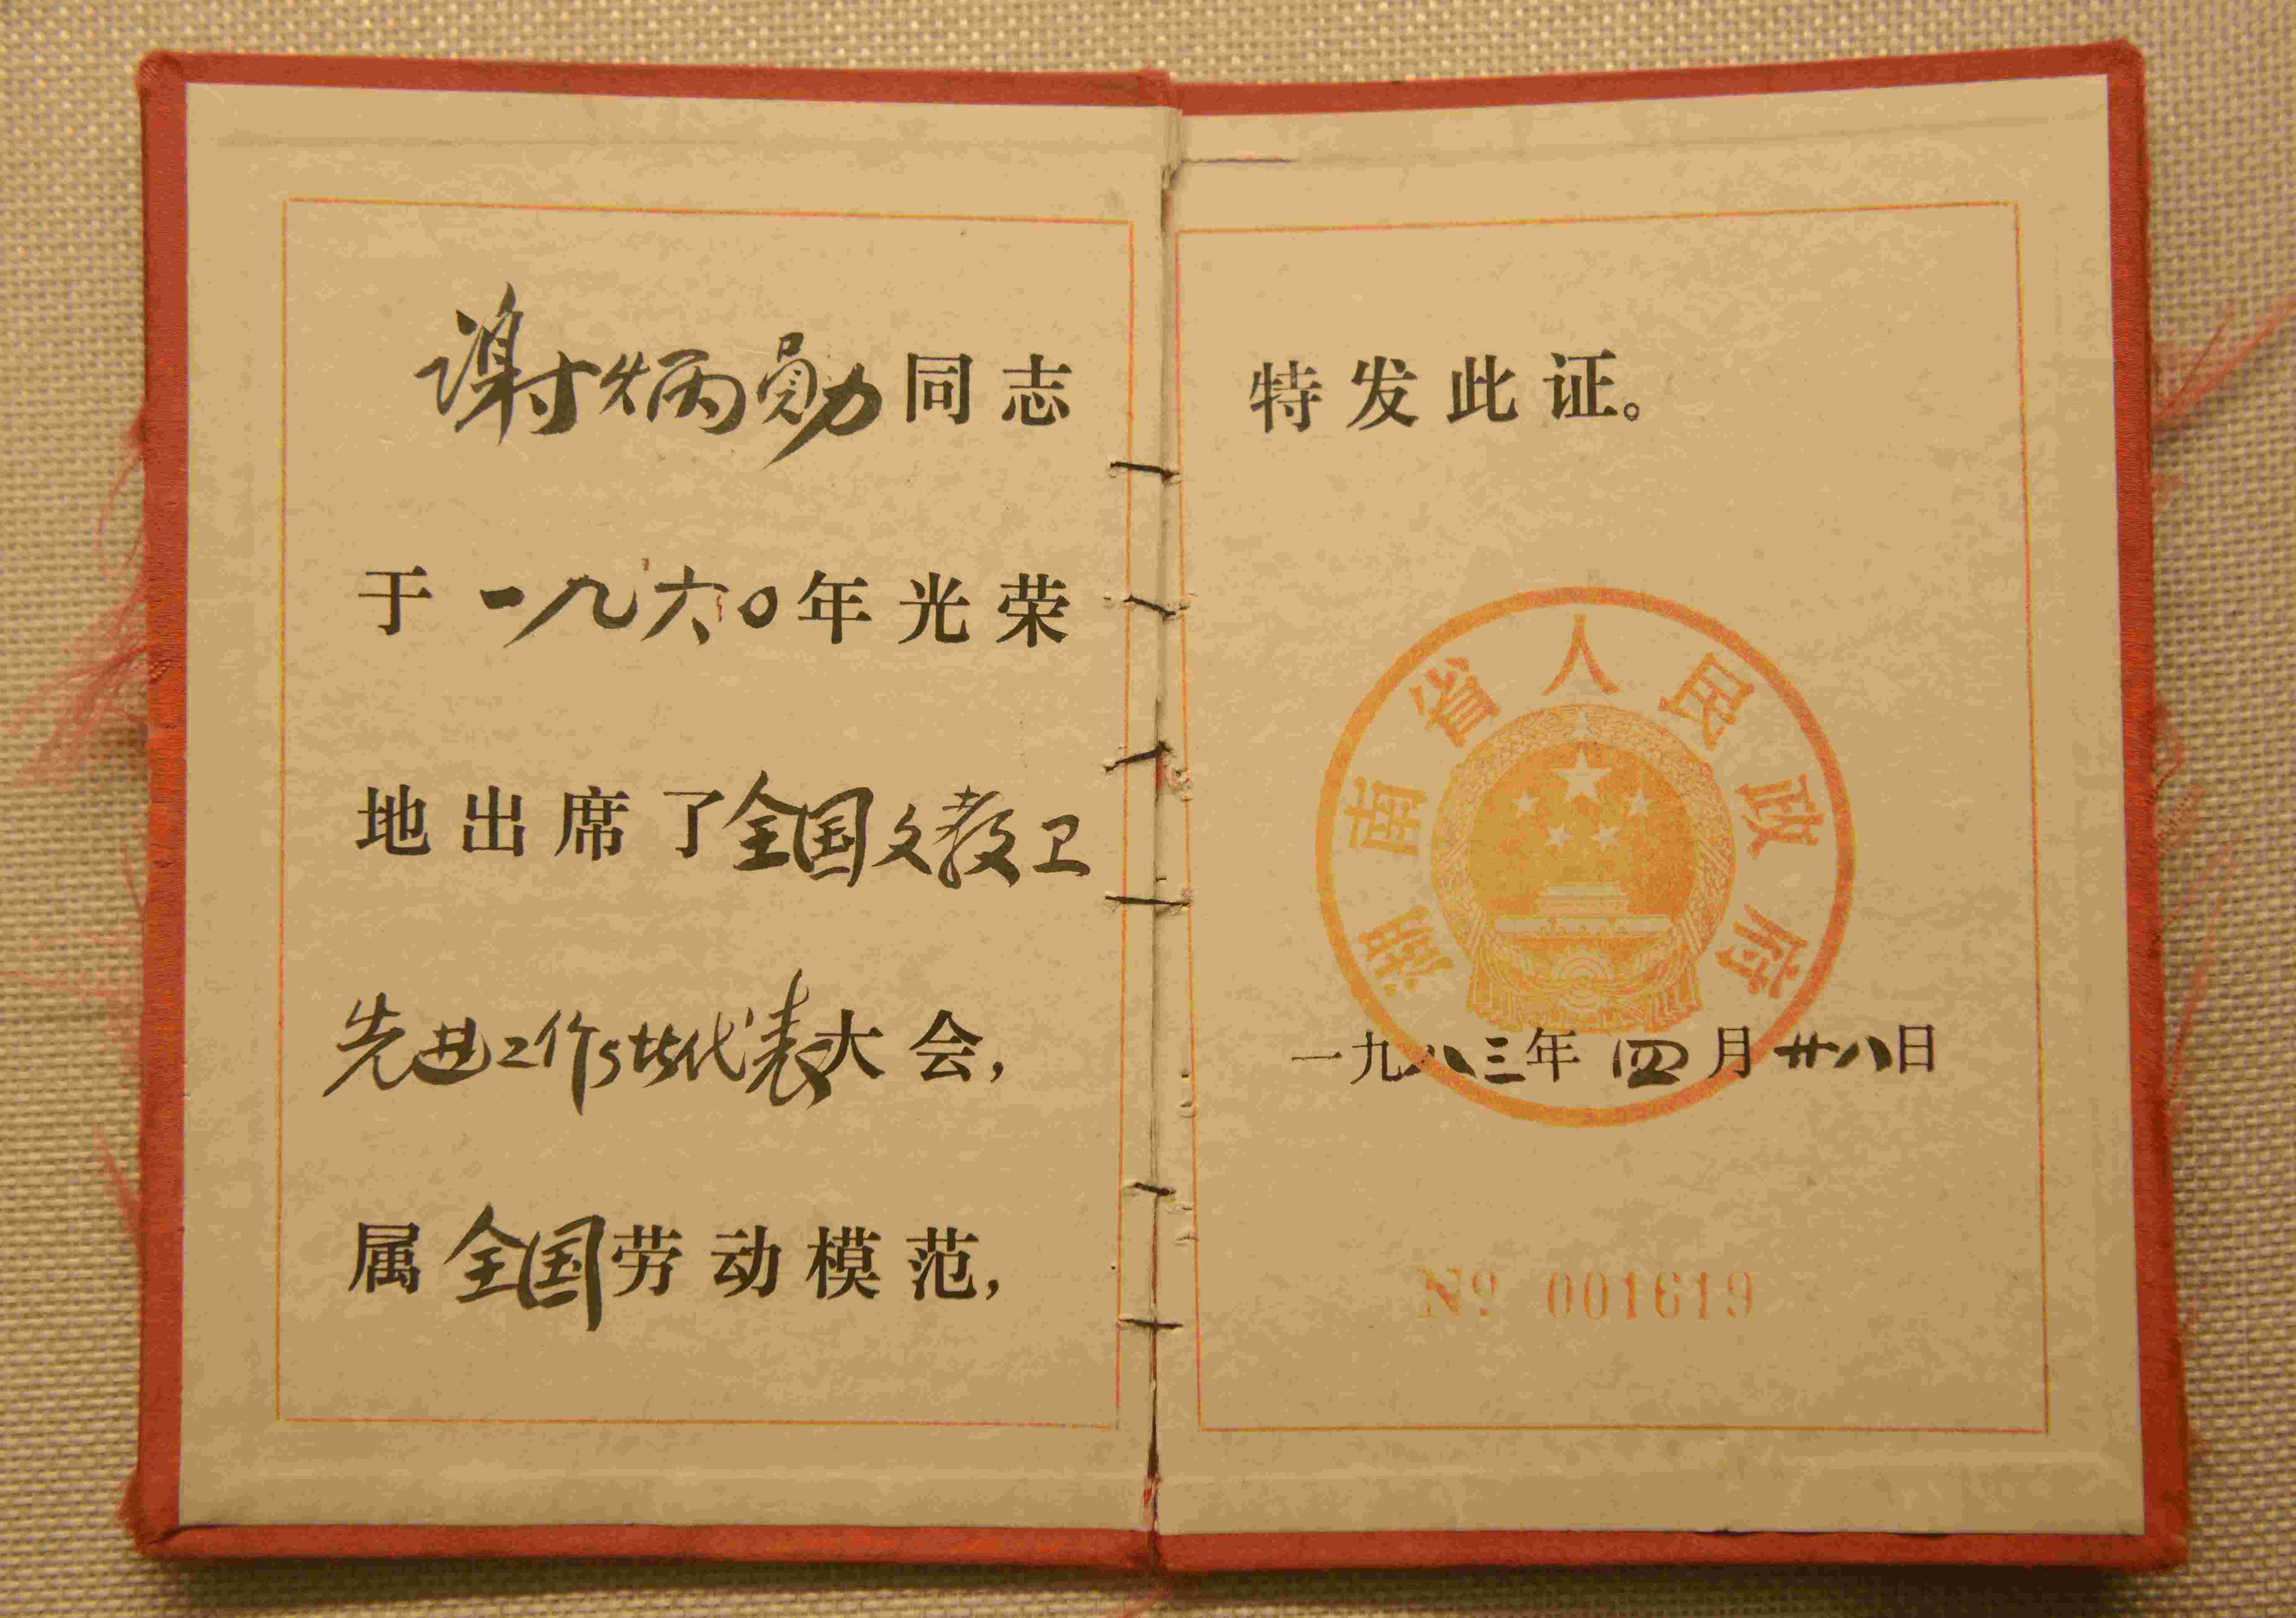 谢炳勛同志
于一九六〇年光荣
地出席了全国文教卫
先进工作者代表大会，
属全国劳动模范，
特发此证。
湖南省人民政府
一九八三年四月廿八日
Nº 001619